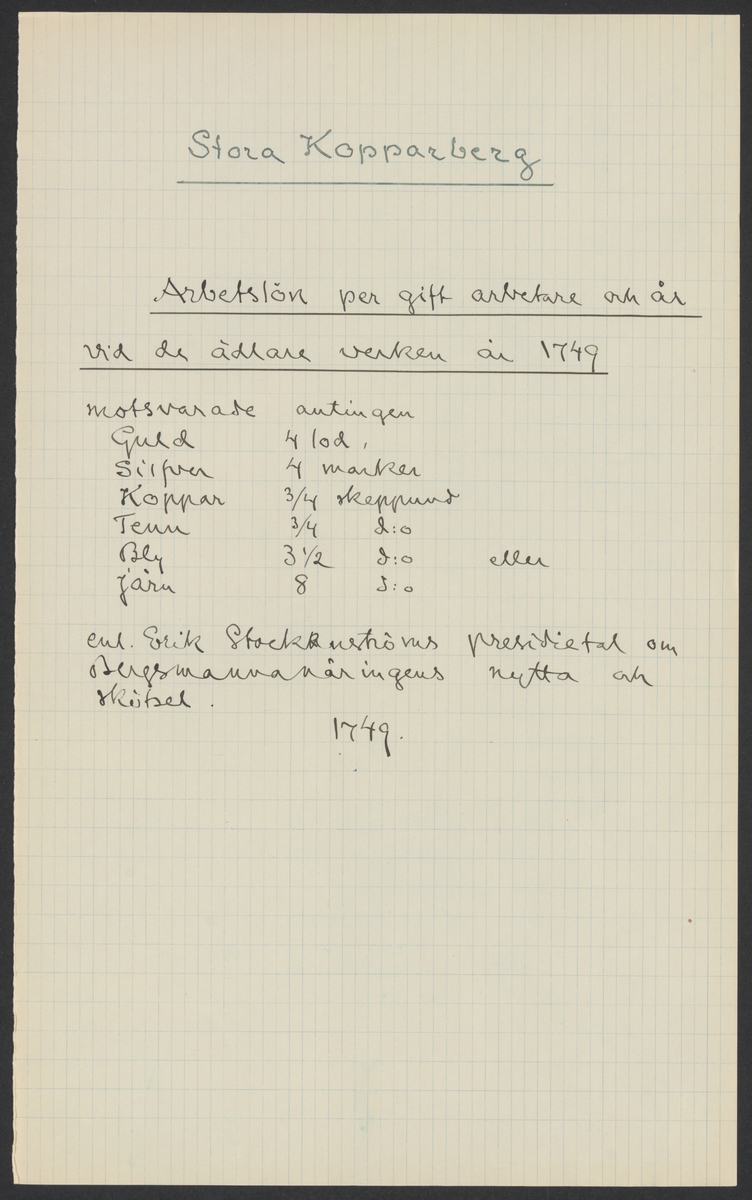 Stora Kopparberg
Arbetslön per gift arbetare och år
vid de ädlare verken år 1749
motsvarade antingen
Guld 4 lod,
Silfver 4 marker
Koppar 3/4 skeppund
Tenn 3/4 d:o
Bly 3 1/2 d:o eller
järn 8 d:o
enl. Erik Stockenströms presidietal om
Bergsmannanäringens nytta och
skötsel.
1749.